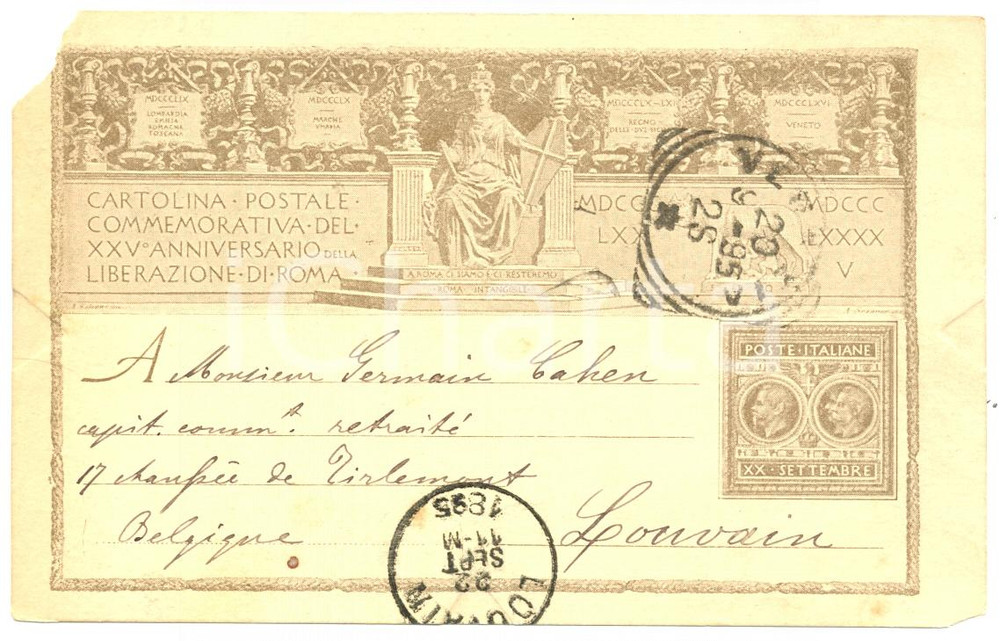 MDCCCLIX
LOMBARDIA
EMILIA
ROMAGNE
TOSCANA
MDCCCLX
MARCHE
VMBRIA
MDCCCLX-LXI
REGNO
DELLE DVE
MDCCCLXVI
VENETO
CARTOLINA · POSTALE ·
COMMEMORATIVA · DEL ·
XXV° ANNIVERSARIO DELLA
LIBERAZIONE · DI · ROMA ·
A ROMA CI SIAMO E CI RESTEREMO
ROMA INTANGIBILE
MDCC
LXX
MDCCC
LXXXX
V
20
9-95
2S
POSTE · ITALIANE
XX · SETTEMBRE
A Monsieur Germain Cahen
capit. commt. retraité
17 chaussée de Tirlemont
Louvain
Belgique
LOUVAIN
22
SEPT
11-M
1895
icharta